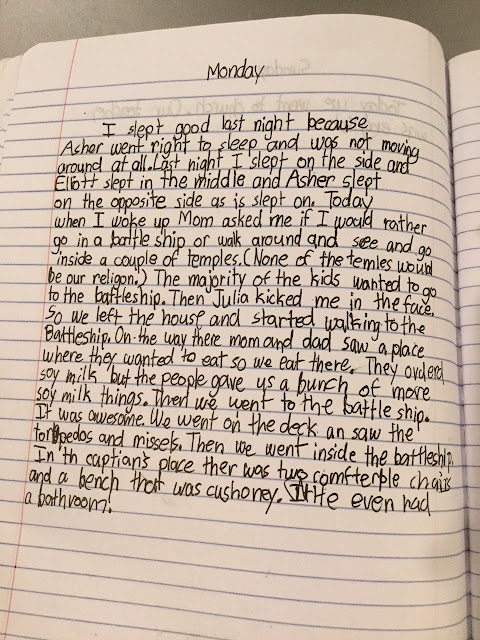 Monday
I slept good last night because
Asher went right to sleep and was not moving
around at all. Last night I slept on the side and
Elliott slept in the middle and Asher slept
on the opposite side as is slept on. Today
when I woke up Mom asked me if I would rather
go in a battle ship or walk around and see and go
inside a couple of temples. (None of the temles would
be our religon.) The majority of the kids wanted to go
to the battleship. Then Julia kicked me in the face.
So we left the house and started walking to the
Battleship. On the way there mom and dad saw a place
where they wanted to eat so we eat there. They orderd
soy milk but the people gave us a bunch of more
soy milk things. Then we went to the battle ship.
It was awesome. We went on the deck an saw the
torpedos and missels. Then we went inside the battleship.
In th captian's place ther was two comfterple chairs
and a bench that was cushoney. He even had
a bathroom!